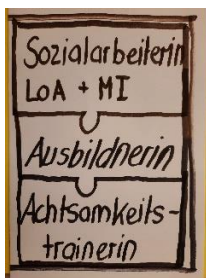 Sozialarbeiterin
LoA + MI
Ausbildnerin
Achtsamkeits-
trainerin